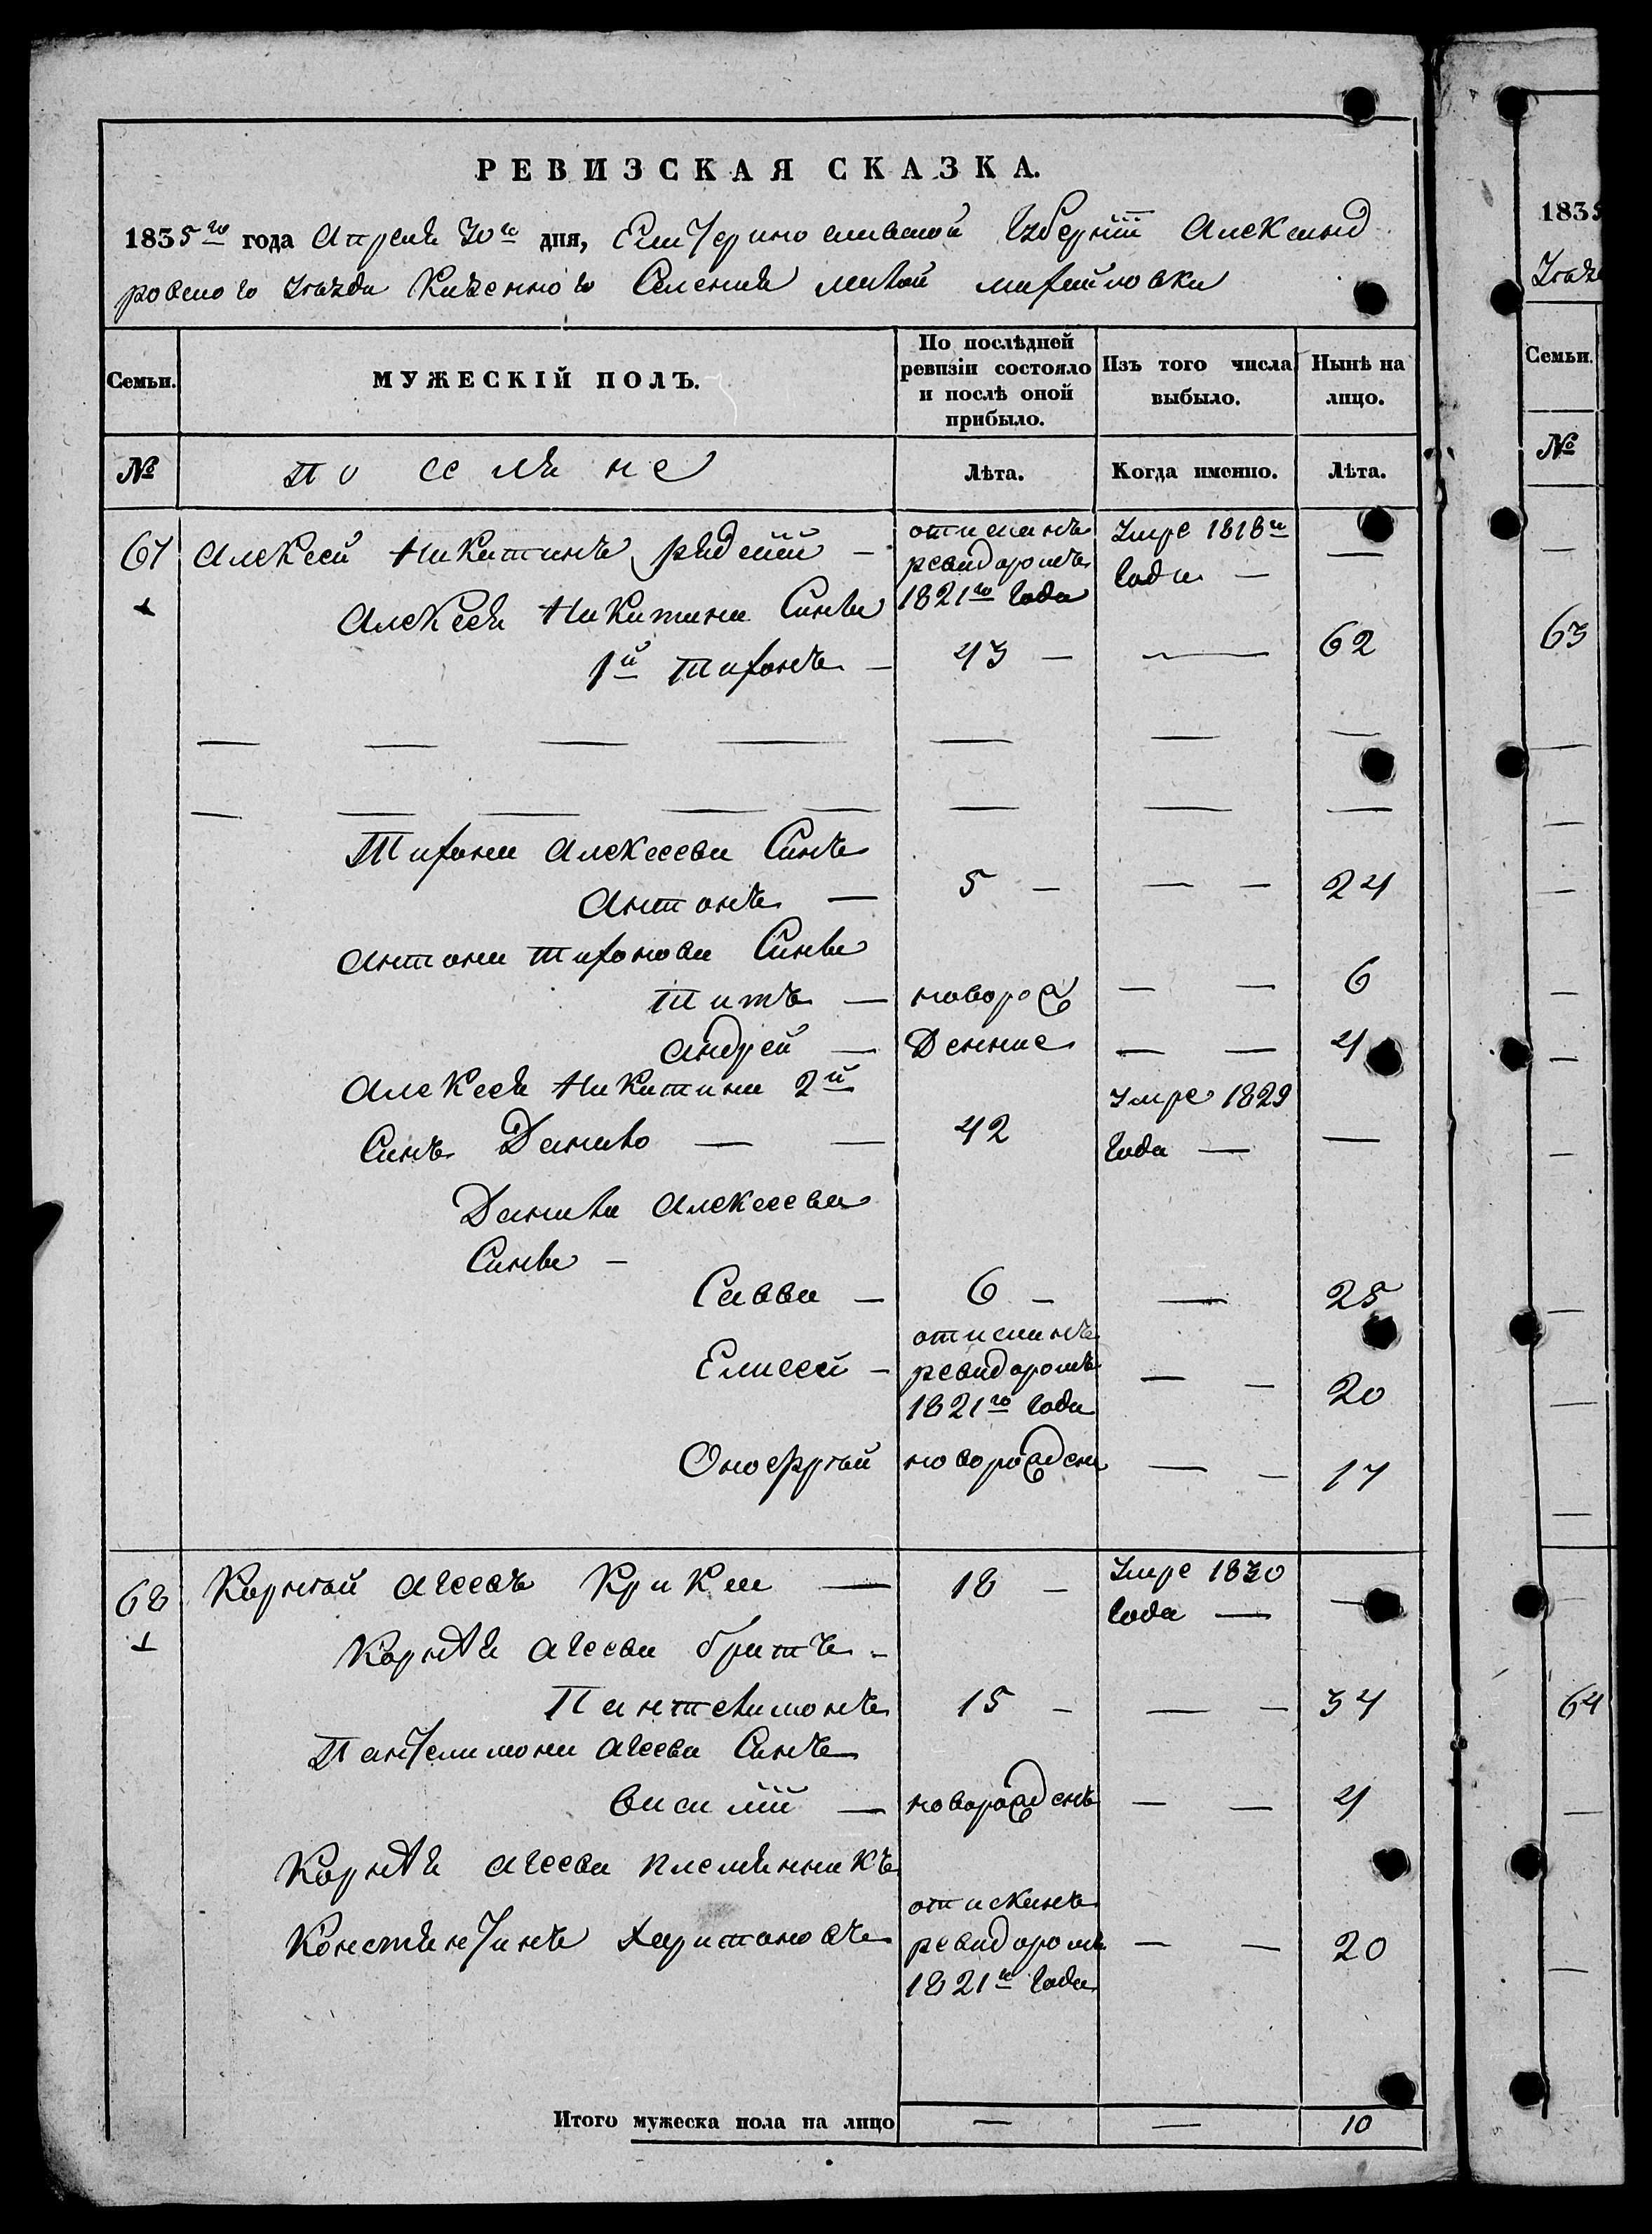 РЕВИЗСКАЯ СКАЗКА.
1835го года Апреля 30го дня, Екатеринославской Губернiи Александ
ровского уезда Казенного Селения малой михайловки
Семьи.
МУЖЕСКІЙ ПОЛЪ.
По послѣдней ревизіи состояло и послѣ оной прибыло.
Изъ того числа выбыло.
Нынѣ на лицо.
№
поселяне
Лѣта.
Когда именно.
Лѣта.
67 Алексей Никитинъ — отисканъ ревидоромъ 1821го года Умре 1818го года — —
Алексея Никитина Сынва
1й Тихонъ — 43 — — 62
— — — — — — —
— — — — — — — —
Тихона Алексеева Сынъ
Антонъ — 5 — — — 24
Антона Тихонова Сынва
Титъ — новорож — — 6
Андрей — Денние — — 4
Алексея Никитина 2й
Сынъ Данило — — 42 Умре 1829 года — —
Данила Алексеева
Сынва —
Савва — 6 — — 25
Елисей — отисканъ ревидоромъ 1821го года — — 20
Оноефрiй новорожден — — 17
68 Корнiй Агеевъ Крикли — 18 — Умре 1830 года — —
Корнѣя Агеева братъ —
Пантелимонъ 15 — — — 34
Пантелимона Агеева Сынъ
Василiй — новорожденъ — — 4
Корнѣя Агеева племянникъ
Константинъ Харитоновъ отисканъ ревидоромъ 1821го года — — 20
Итого мужеска пола на лицо — — 10
1835
Уезд
Семьи.
№
63
64